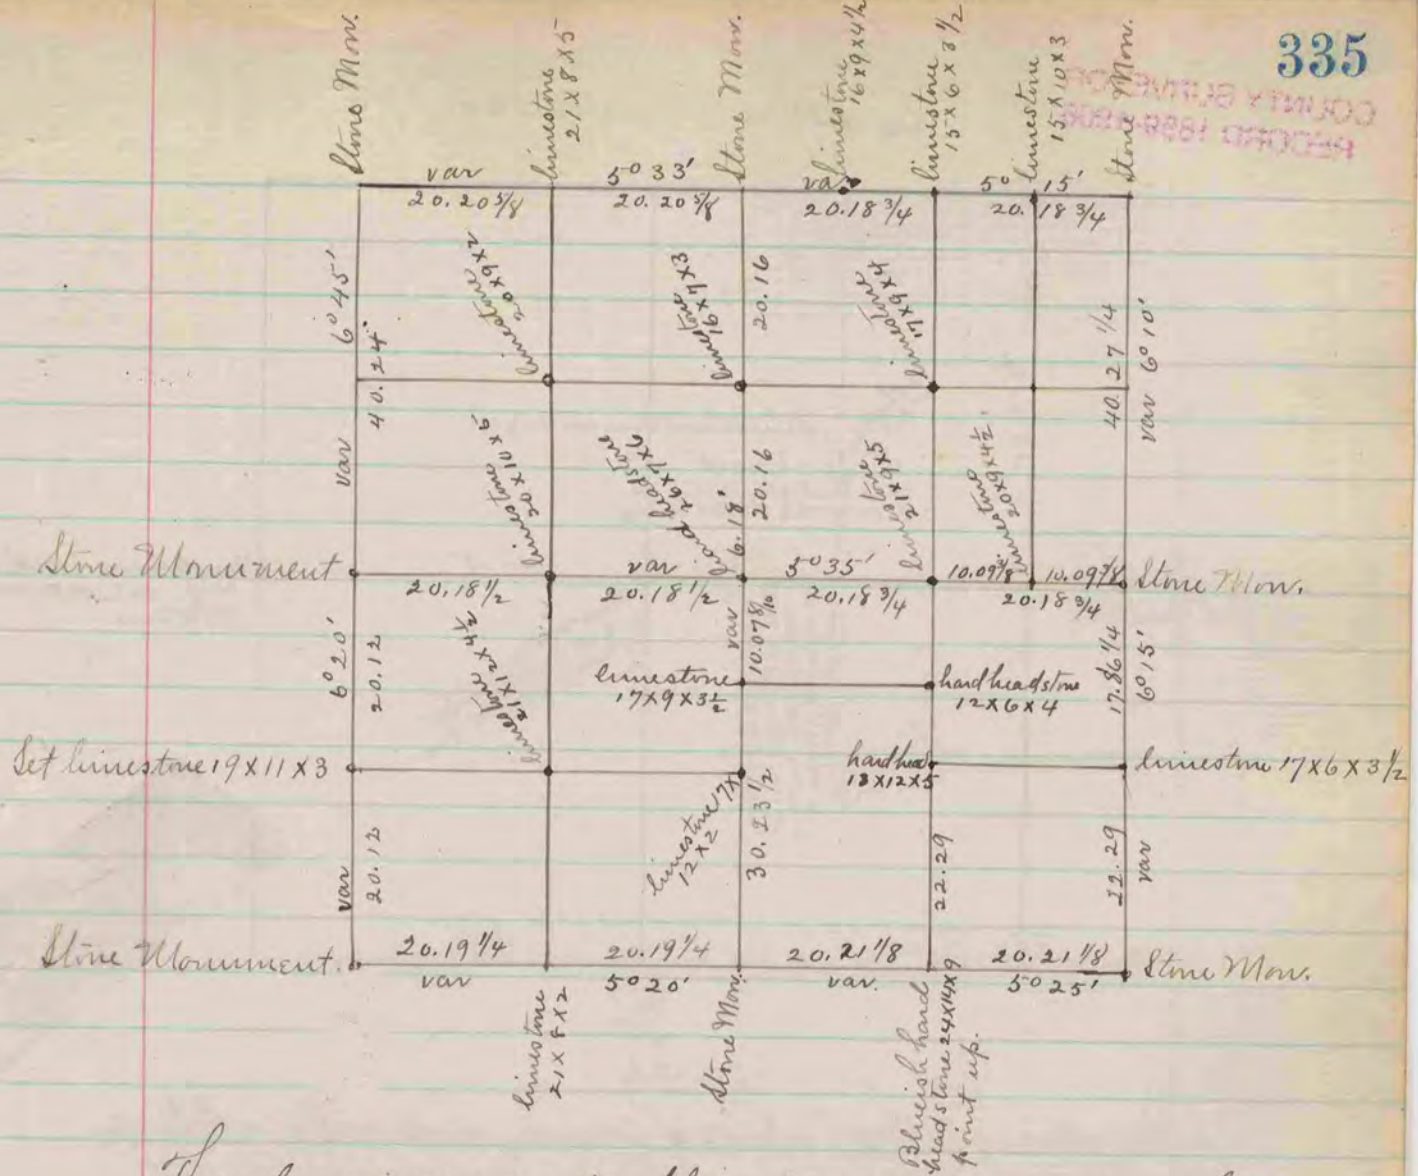 335
COUNTY SURVEYOR
RECORD 1859-1906
Stone Mon.
limestone
21 x 8 x 5
Stone Mon.
limestone
16 x 9 x 4 1/2
limestone
15 x 6 x 3 1/2
limestone
15 x 10 x 3
Stone Mon.
var 5° 33' var 5° 15'
20.20 5/8 20.20 5/8 20.18 3/4 20.18 3/4
var 6° 45'
40.24
limestone
20 x 9 x 2
limestone
16 x 7 x 3
20.16
limestone
17 x 9 x 4
40.27 1/4
var 6° 10'
limestone
20 x 10 x 6
hard headstone
x 6 x 7 x 6
6. 18'
20.16
limestone
21 x 9 x 5
limestone
20 x 9 x 4 1/2
Stone Monument
var 5° 35'
10.09 3/8 10.09 3/8
Stone Mon.
20.18 1/2 20.18 1/2 20.18 3/4 20.18 3/4
var 6° 20'
20.12
limestone
21 x 12 x 4 1/2
var
10.07 8/10
17.86 1/4
var 6° 15'
limestone
17 x 9 x 3 1/2
hard headstone
12 x 6 x 4
Set limestone 19 x 11 x 3
hard head
13 x 12 x 5
limestone 17 x 6 x 3 1/2
20.12
limestone 17 x
12 x 2
30.23 1/2
22.29
22.29
Stone Monument.
20.19 1/4 20.19 1/4 20.21 1/8 20.21 1/8
Stone Mon.
var 5° 20' var. 5° 25'
limestone
21 x 8 x 2
Stone Mon.
Blueish hard
headstone 24 x 14 x 9
point up.